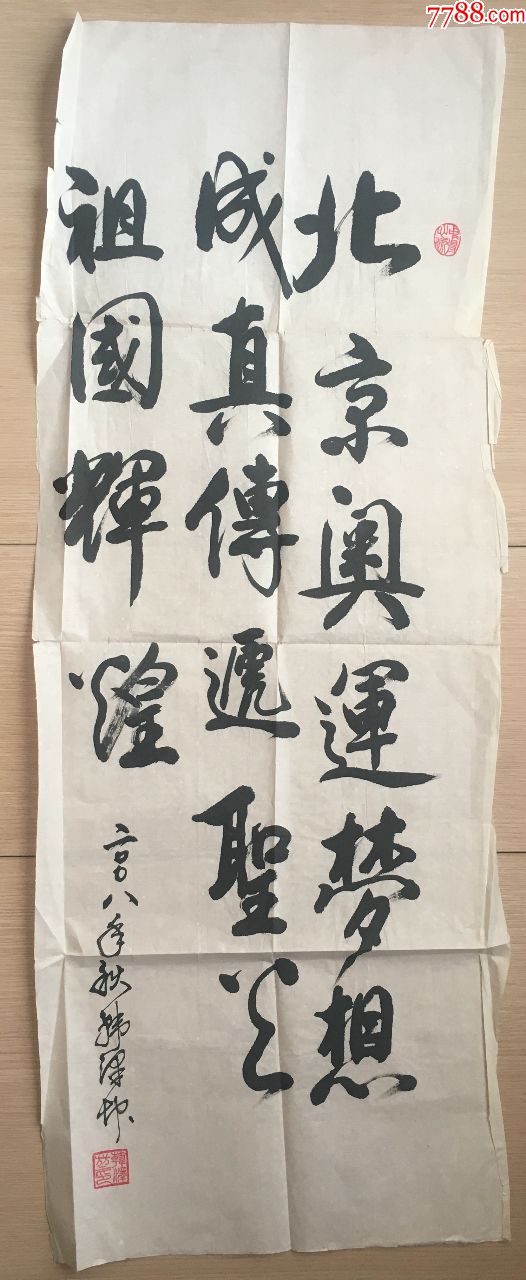 7788.com
北京奥運夢想
成真傳遞聖火
祖國輝煌
二〇〇八年秋韓澤